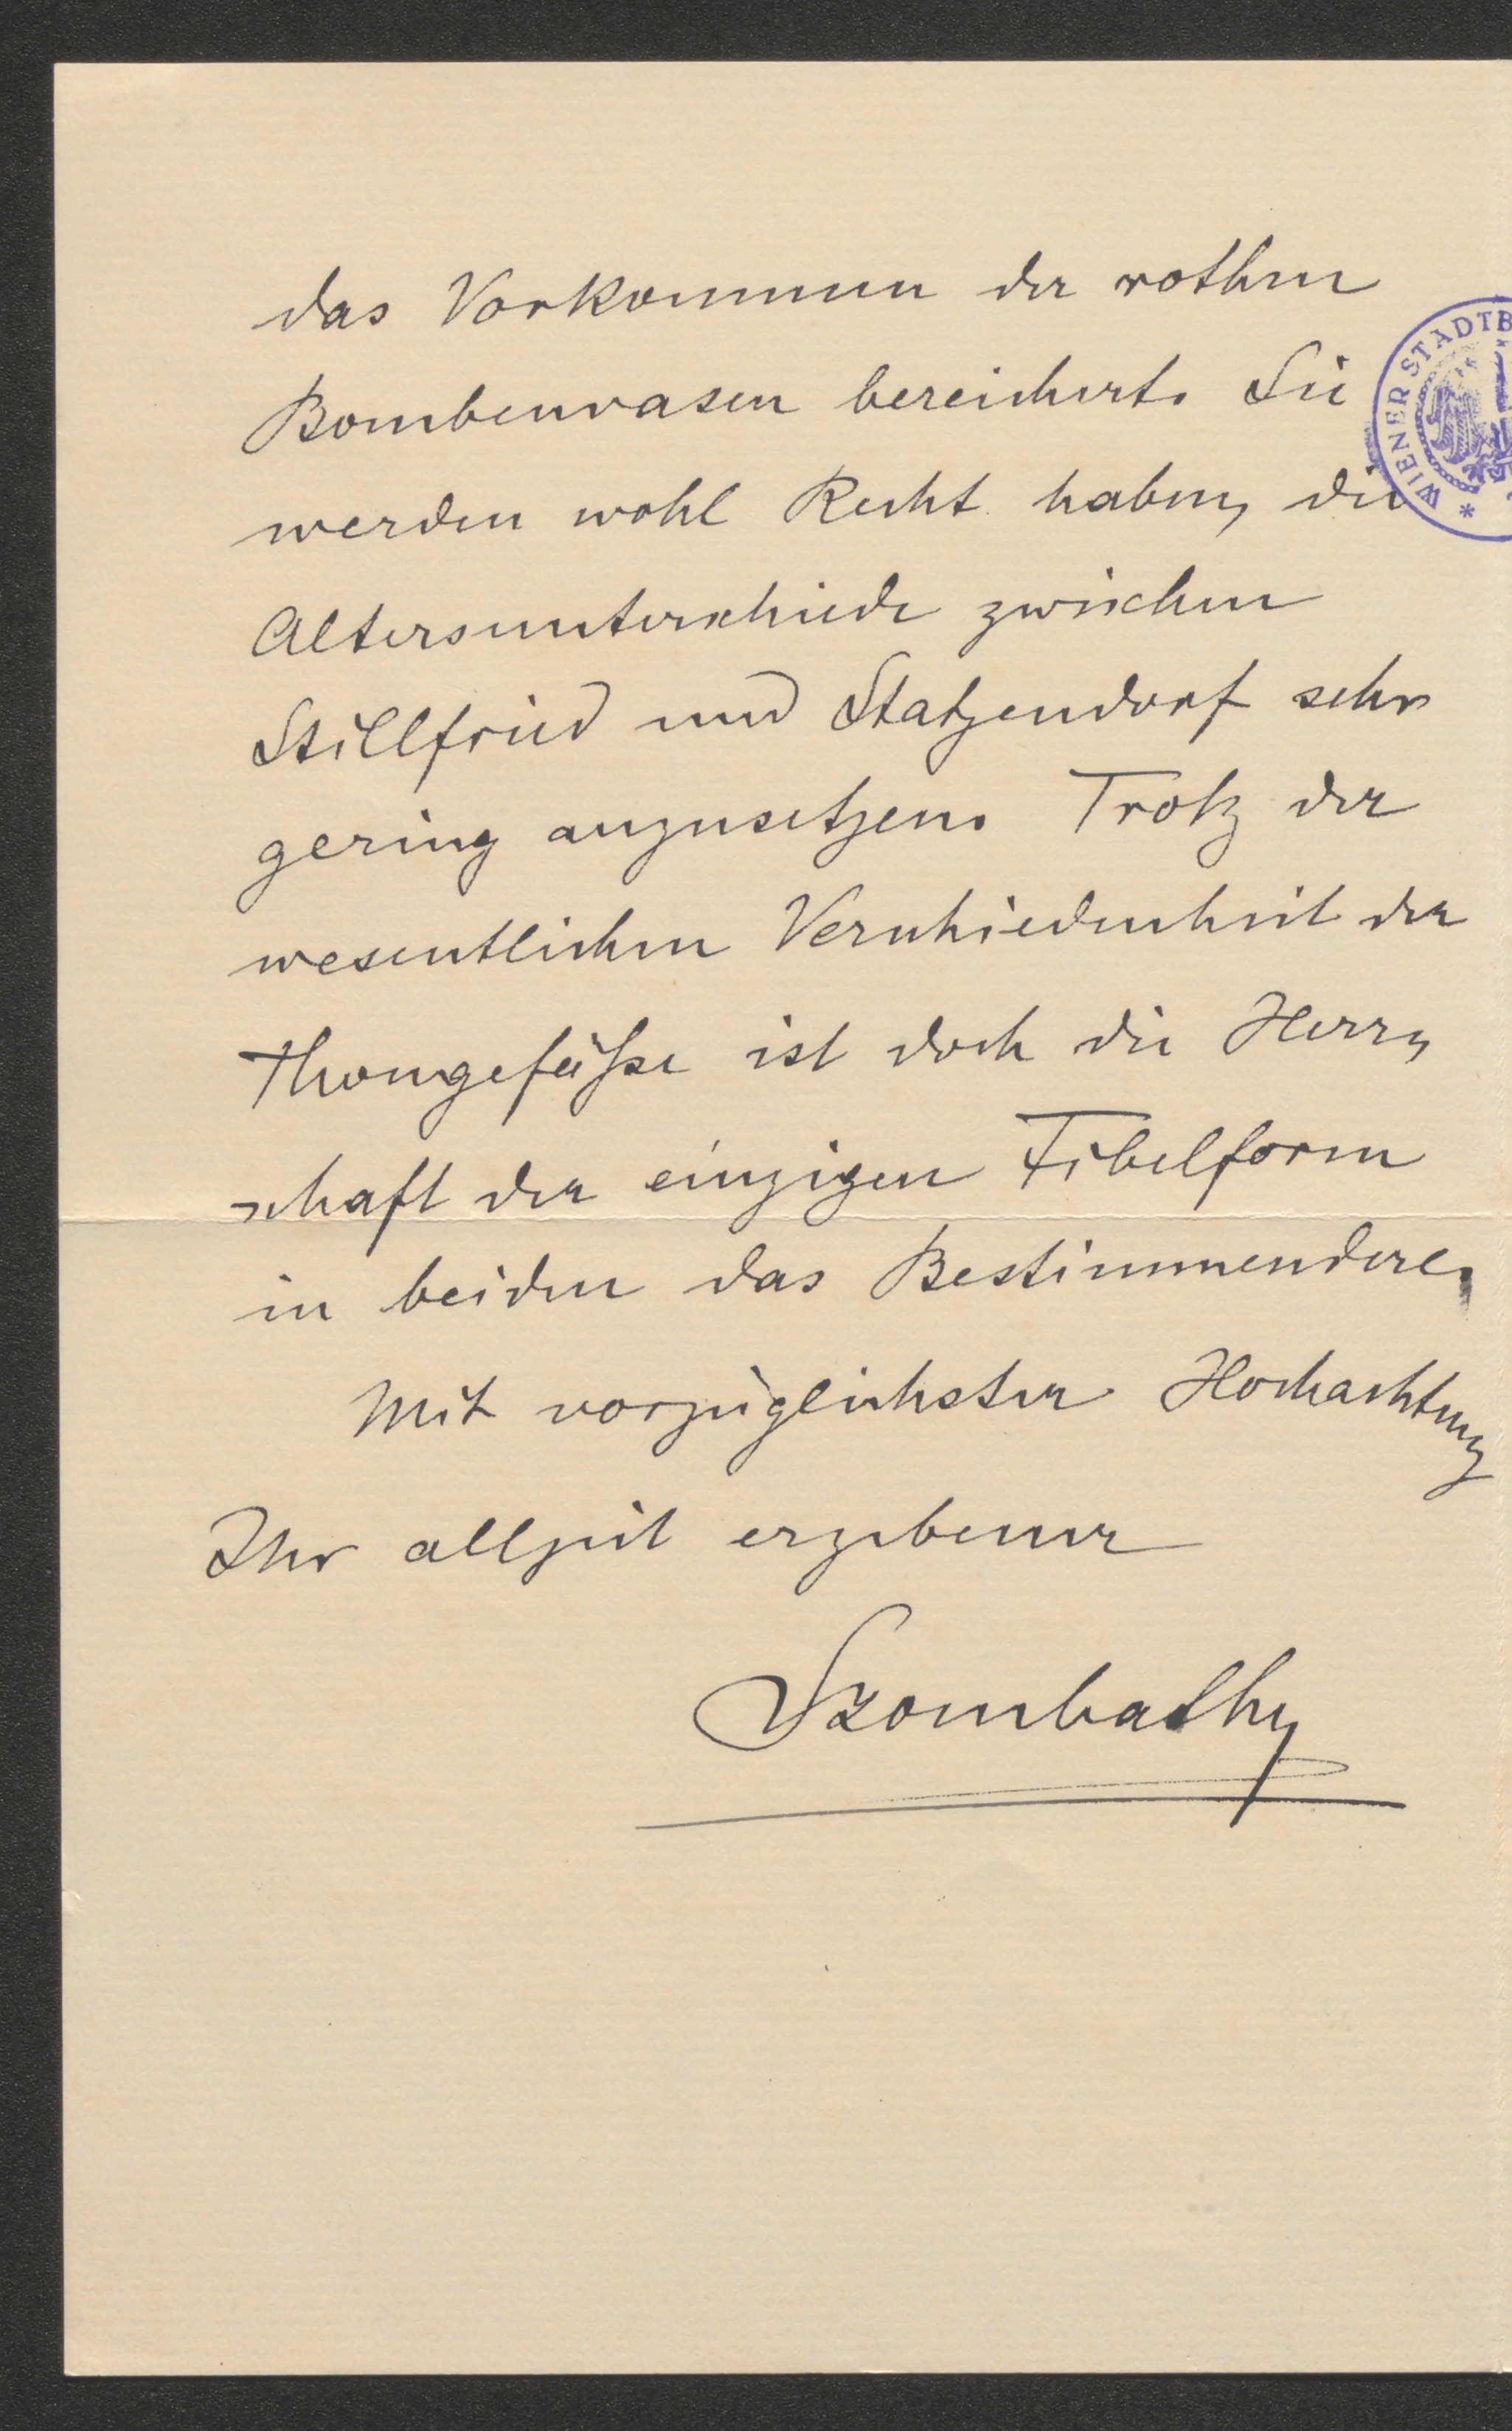 das Vorkommen der rothen
Bombenvasen bereichert. Sie
werden wohl Recht haben, die
Altersunterschiede zwischen
Stillfried und Statzendorf sehr
gering anzusetzen. Trotz der
wesentlichen Verschiedenheit der
Thongefäße ist doch die Herr-
schaft der einzigen Fibelform
in beiden das Bestimmendere.
Mit vorzüglichster Hochachtung
Ihr allzeit ergebener
Szombathy
* WIENER STADTB